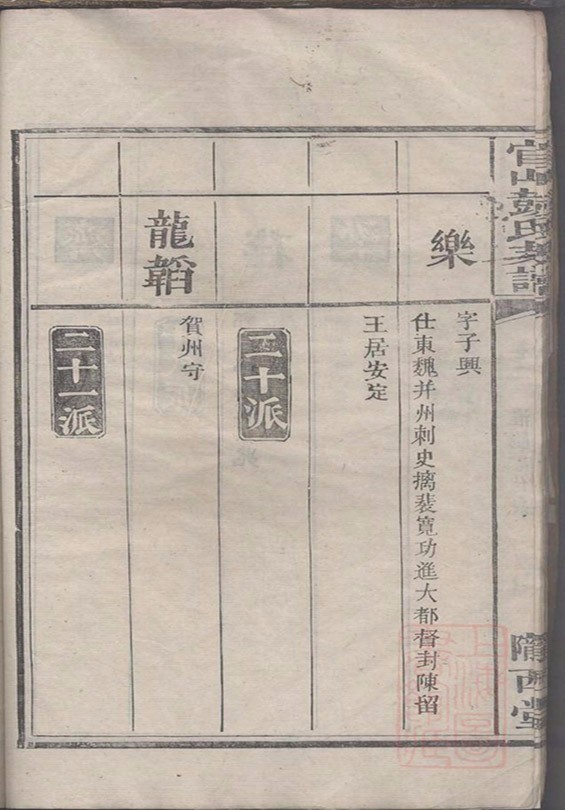 官山彭氏族譜
隴西堂
樂
字子興
仕東魏并州刺史擒裴寬功進大都督封陳留
王居安定
二十派
龍韜
賀州守
二十一派